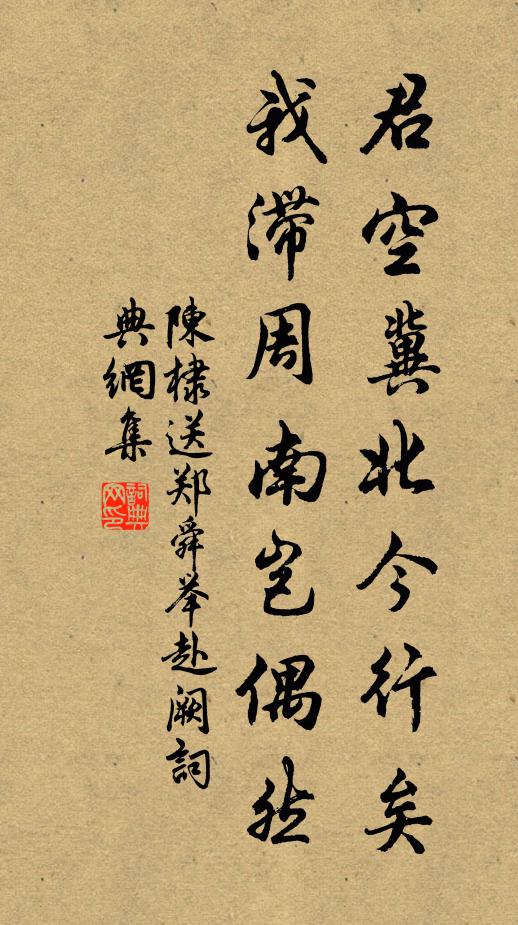 君空冀北今行矣
我滞周南岂偶然
陳棣送郑舜举赴阙詞
典網集
詞典网印